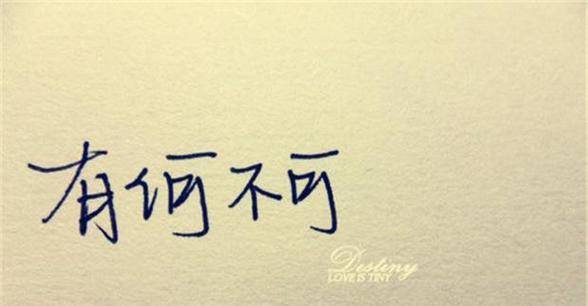 有何不可
Destiny
LOVE IS TINY